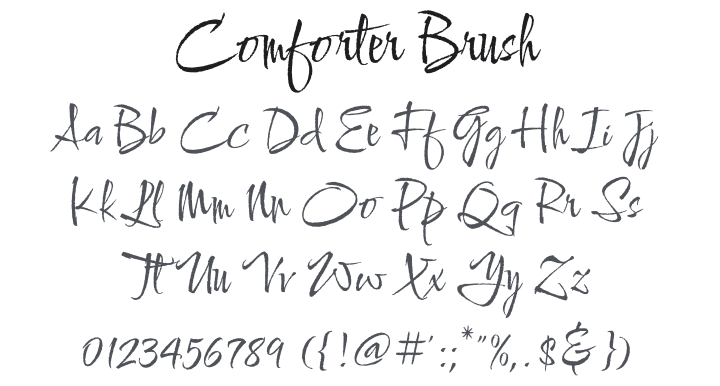 Comforter Brush
Aa Bb Cc Dd Ee Ff Gg Hh Ii Jj
Kk Ll Mm Nn Oo Pp Qq Rr Ss
Tt Uu Vv Ww Xx Yy Zz
0123456789 ({!@#':;*"%,.$&})